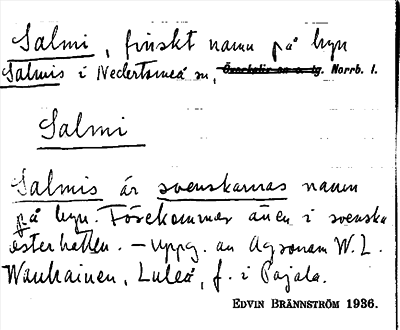 Salmi, finskt namn på byn
Salmis i Nedertorneå sn, Norrb. l.
Salmi
Salmis är svenskarnas namn
på byn. Förekommer även i svenska
österbotten. – Uppg. av Agronom W. L.
Wanhainen, Luleå, f. i Pajala.
EDVIN BRÄNNSTRÖM 1936.